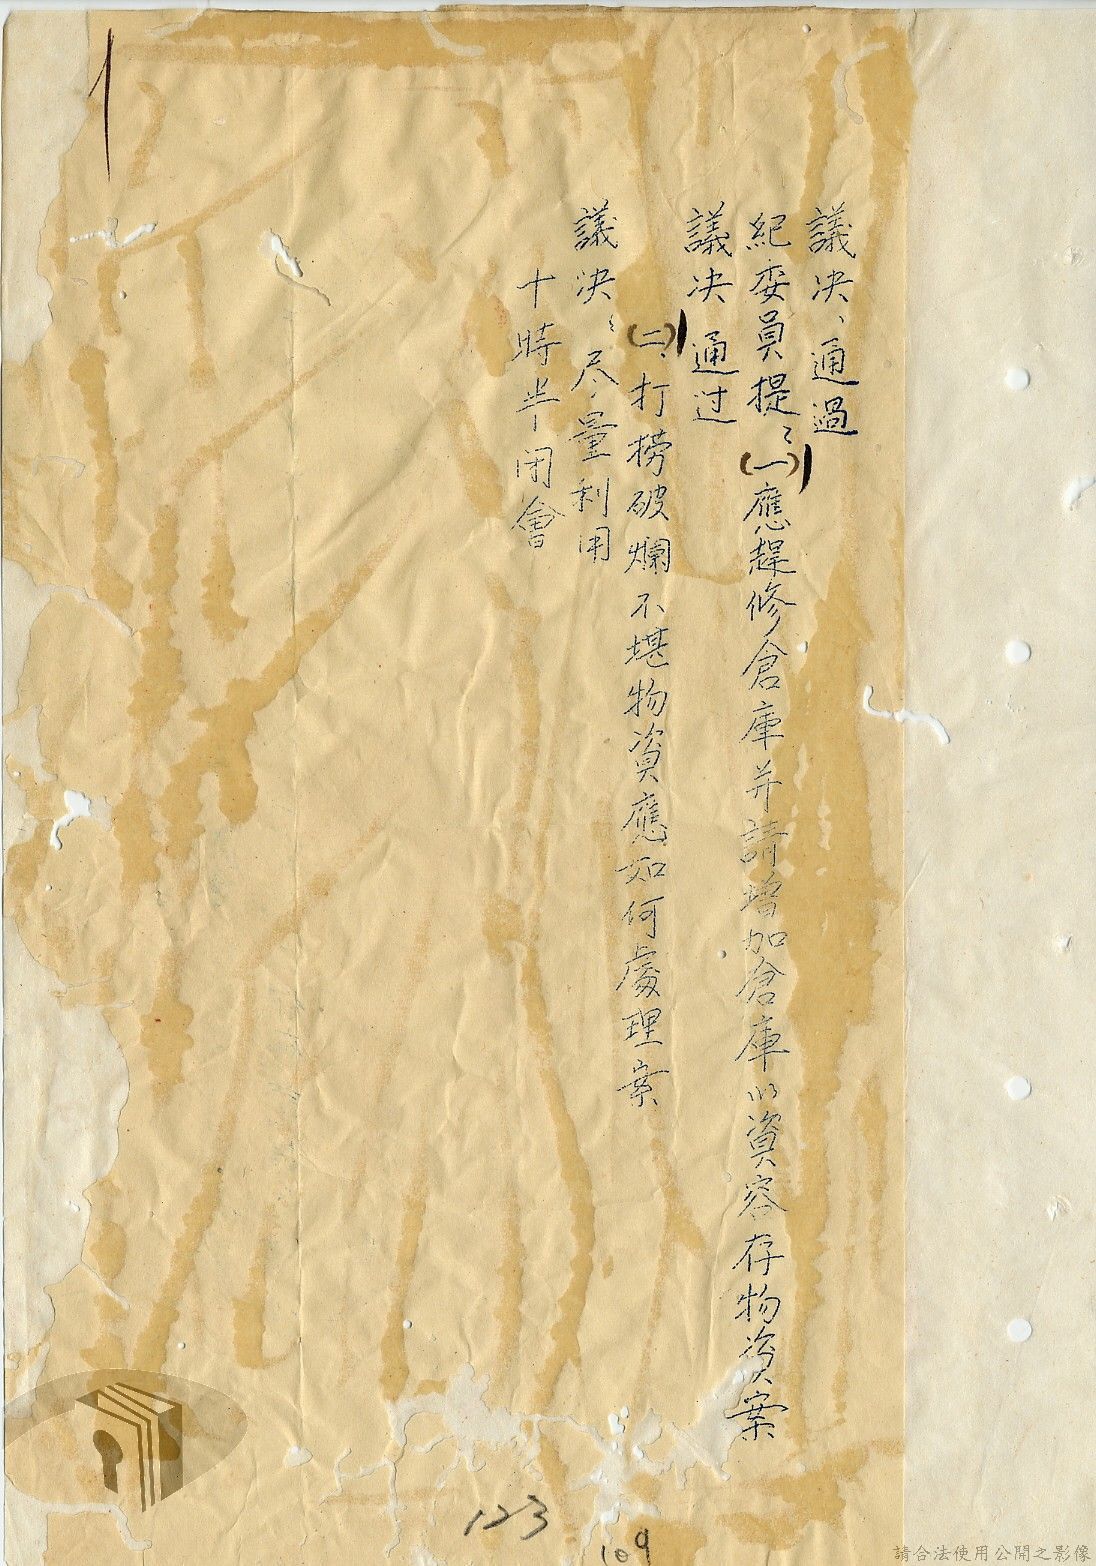 議决、通過
紀委員提:(一)應趕修倉庫并請增加倉庫以資容存物資案
議决 通过
(二)打撈破爛不堪物資應如何處理案
議决:尽量利用
十時半閉會
123
109
請合法使用公開之影像